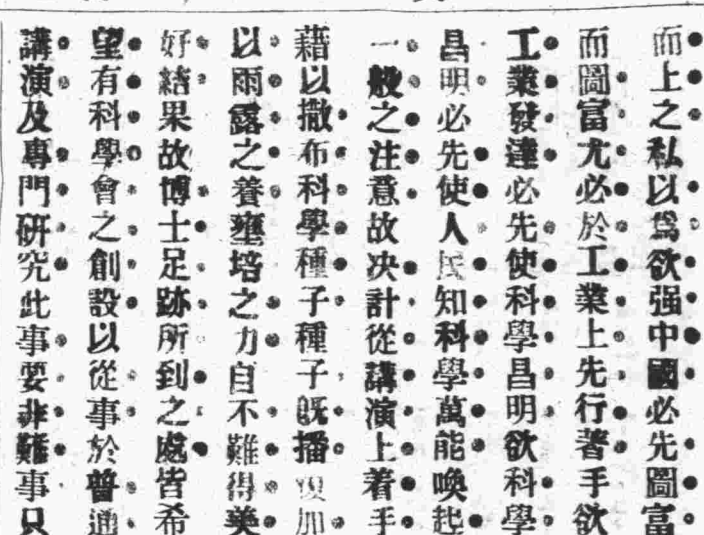 而上之私以爲欲强中國必先圖富
而圖富尤必於工業上先行著手欲
工業發達必先使科學昌明欲科學
昌明必先使人民知科學萬能喚起
一般之注意故决計從講演上着手
藉以撒布科學種子種子既播復加
以雨露之養壅培之力自不難得美
好結果故博士足跡所到之處皆希
望有科學會之創設以從事於普通
講演及專門研究此事要非難事只